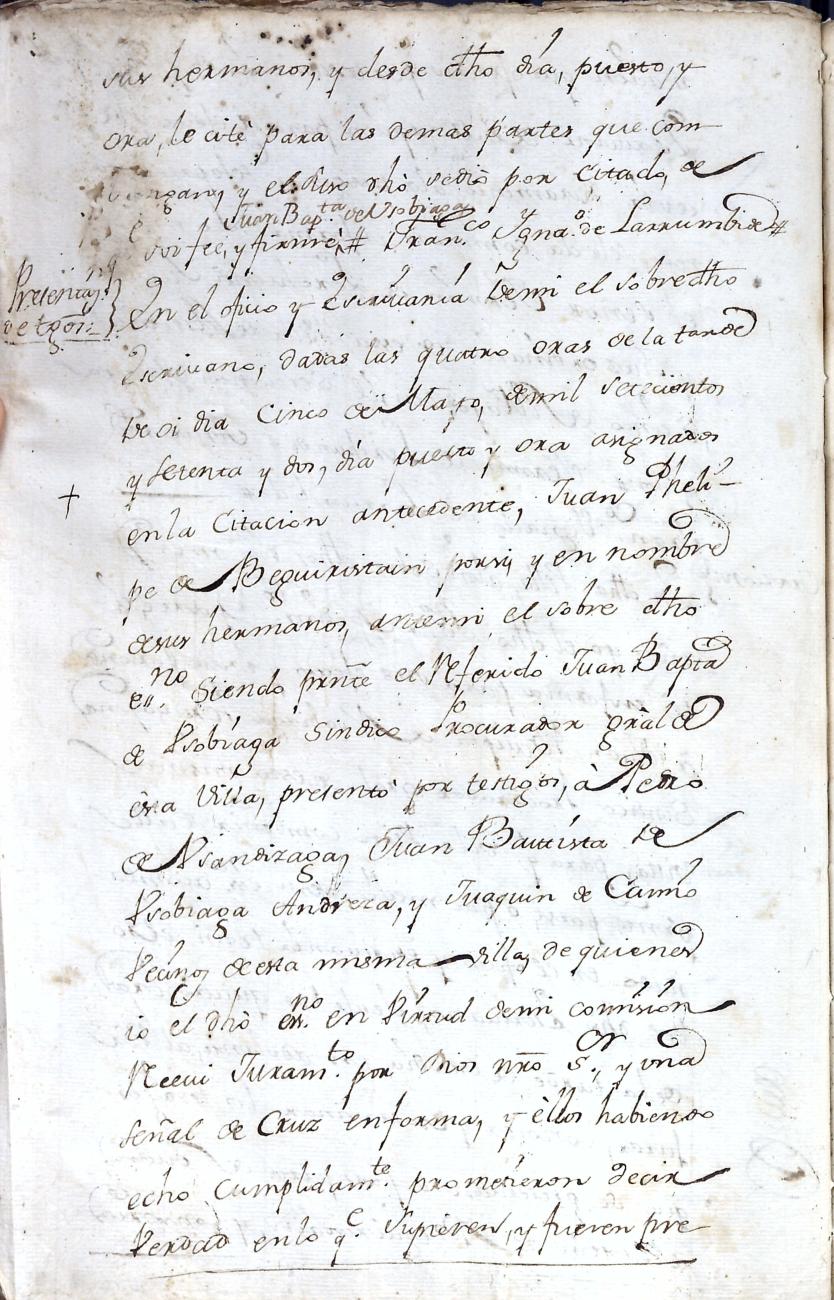 sus hermanos, y desde dho día, puesto, y
ora, le citè para las demas partes que com
vengan, y el Suso dhò se diò por Citado, de
Juan Bapta. de Usobiaga
Doi fee, y firmè, # Franco. Ygnao. de Larrumbide #
Presentan.
de tgos.
En el oficio y Escrivania de mi el sobre dho
Escrivano, dadas las quatro oras de la tarde
de oi dia Cinco de Mayo, de mil setecientos
y setenta y dos, día puesto y ora asignados
+
en la Citacion antecedente, Juan Pheli-
pe de Beguiristain por si, y en nombre
de sus hermanos, ante mi el sobre dho
esno. Siendo prnte el Referido Juan Bapta
de Vsobiaga Sindico Procurador gràl de
esta Villa, presentò por testigos, à Pedro
de Vsandizaga, Juan Bautista de
Vsobiaga Andreza, y Juaquin de Camio
Vecinos de esta misma villa, de quienes
io el dhò esno. en Virtud de mi comision
Recivi Juramto. por Dios nro Sor., y una
señal de Cruz en forma, y èllos habiendo
echo Cumplidamte. prometieron decir
Verdad en lo qe. Supieren, y fueren pre